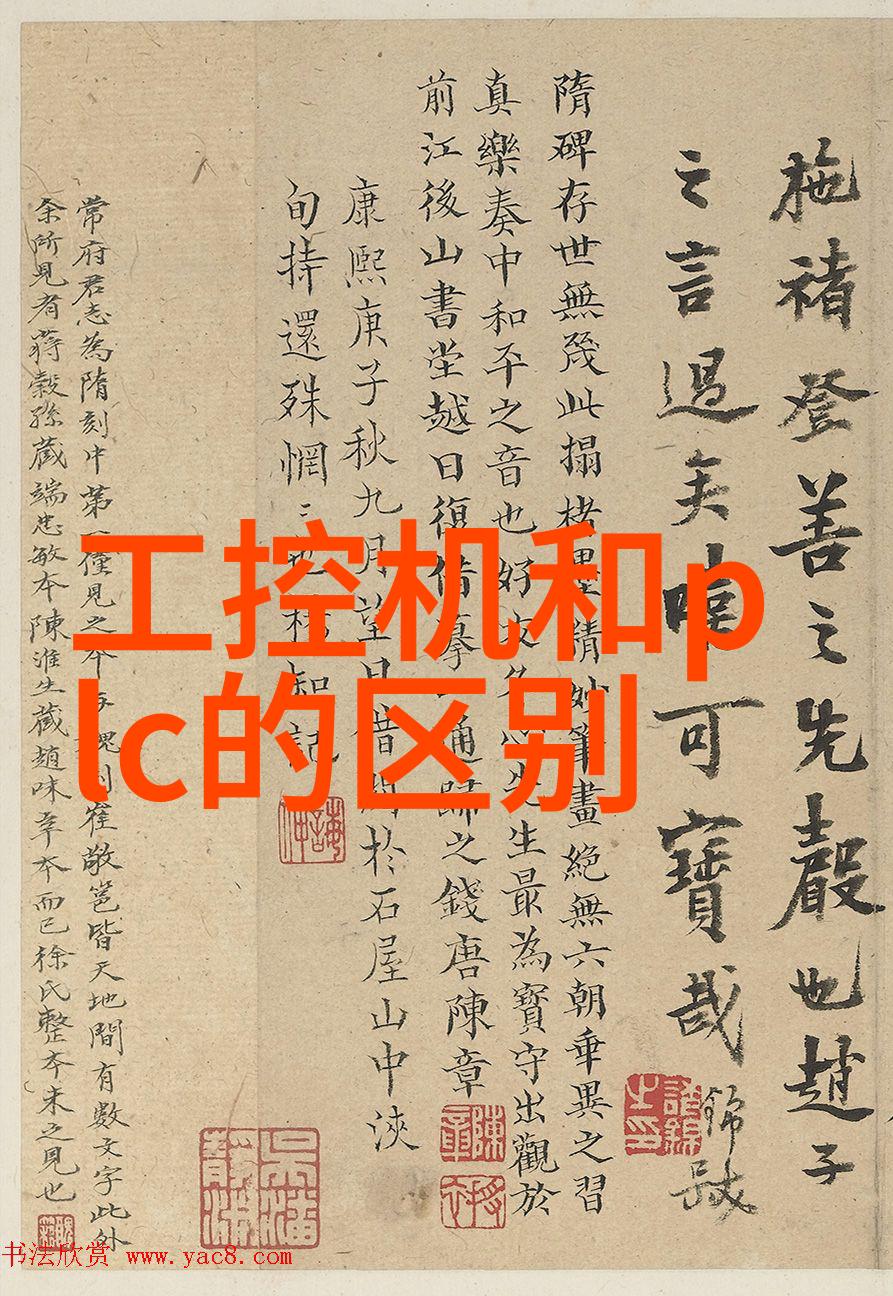 施褚登善之先聲也趙子
之言過矣
可寶哉
錦
隋碑存世無幾此搨楮墨精妙筆畫絕無六朝垂異之習
真樂奏中和平之音也好
先生最為寶守出觀於
前江後山書堂越日復借摹一通歸之錢唐陳章
康熙庚子秋九月望日
於石屋山中浹
旬持還殊惘〻也
知記
常府君志為隋刻中第一僅見之本
崔敬邕皆天地間有數文字此外
余所見有蔣穀孫藏端忠敏本陳淮生藏趙味辛本而已徐氏整本未之見也
工控机和p
lc的区别
书法欣赏 www.yac8.com